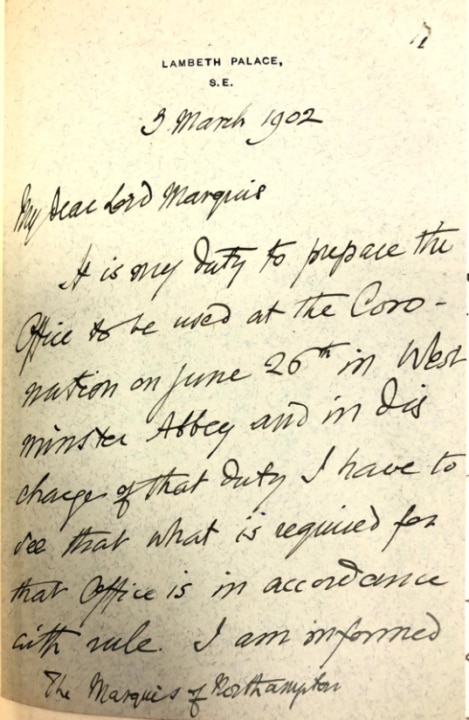 17
LAMBETH PALACE,
S.E.
3 March 1902
My dear Lord Marquis
It is my duty to prepare the
Office to be used at the Coro-
nation on June 26th in West
minster Abbey and in dis
charge of that duty I have to
see that what is required for
that Office is in accordance
with rule. I am informed
The Marquis of Northampton